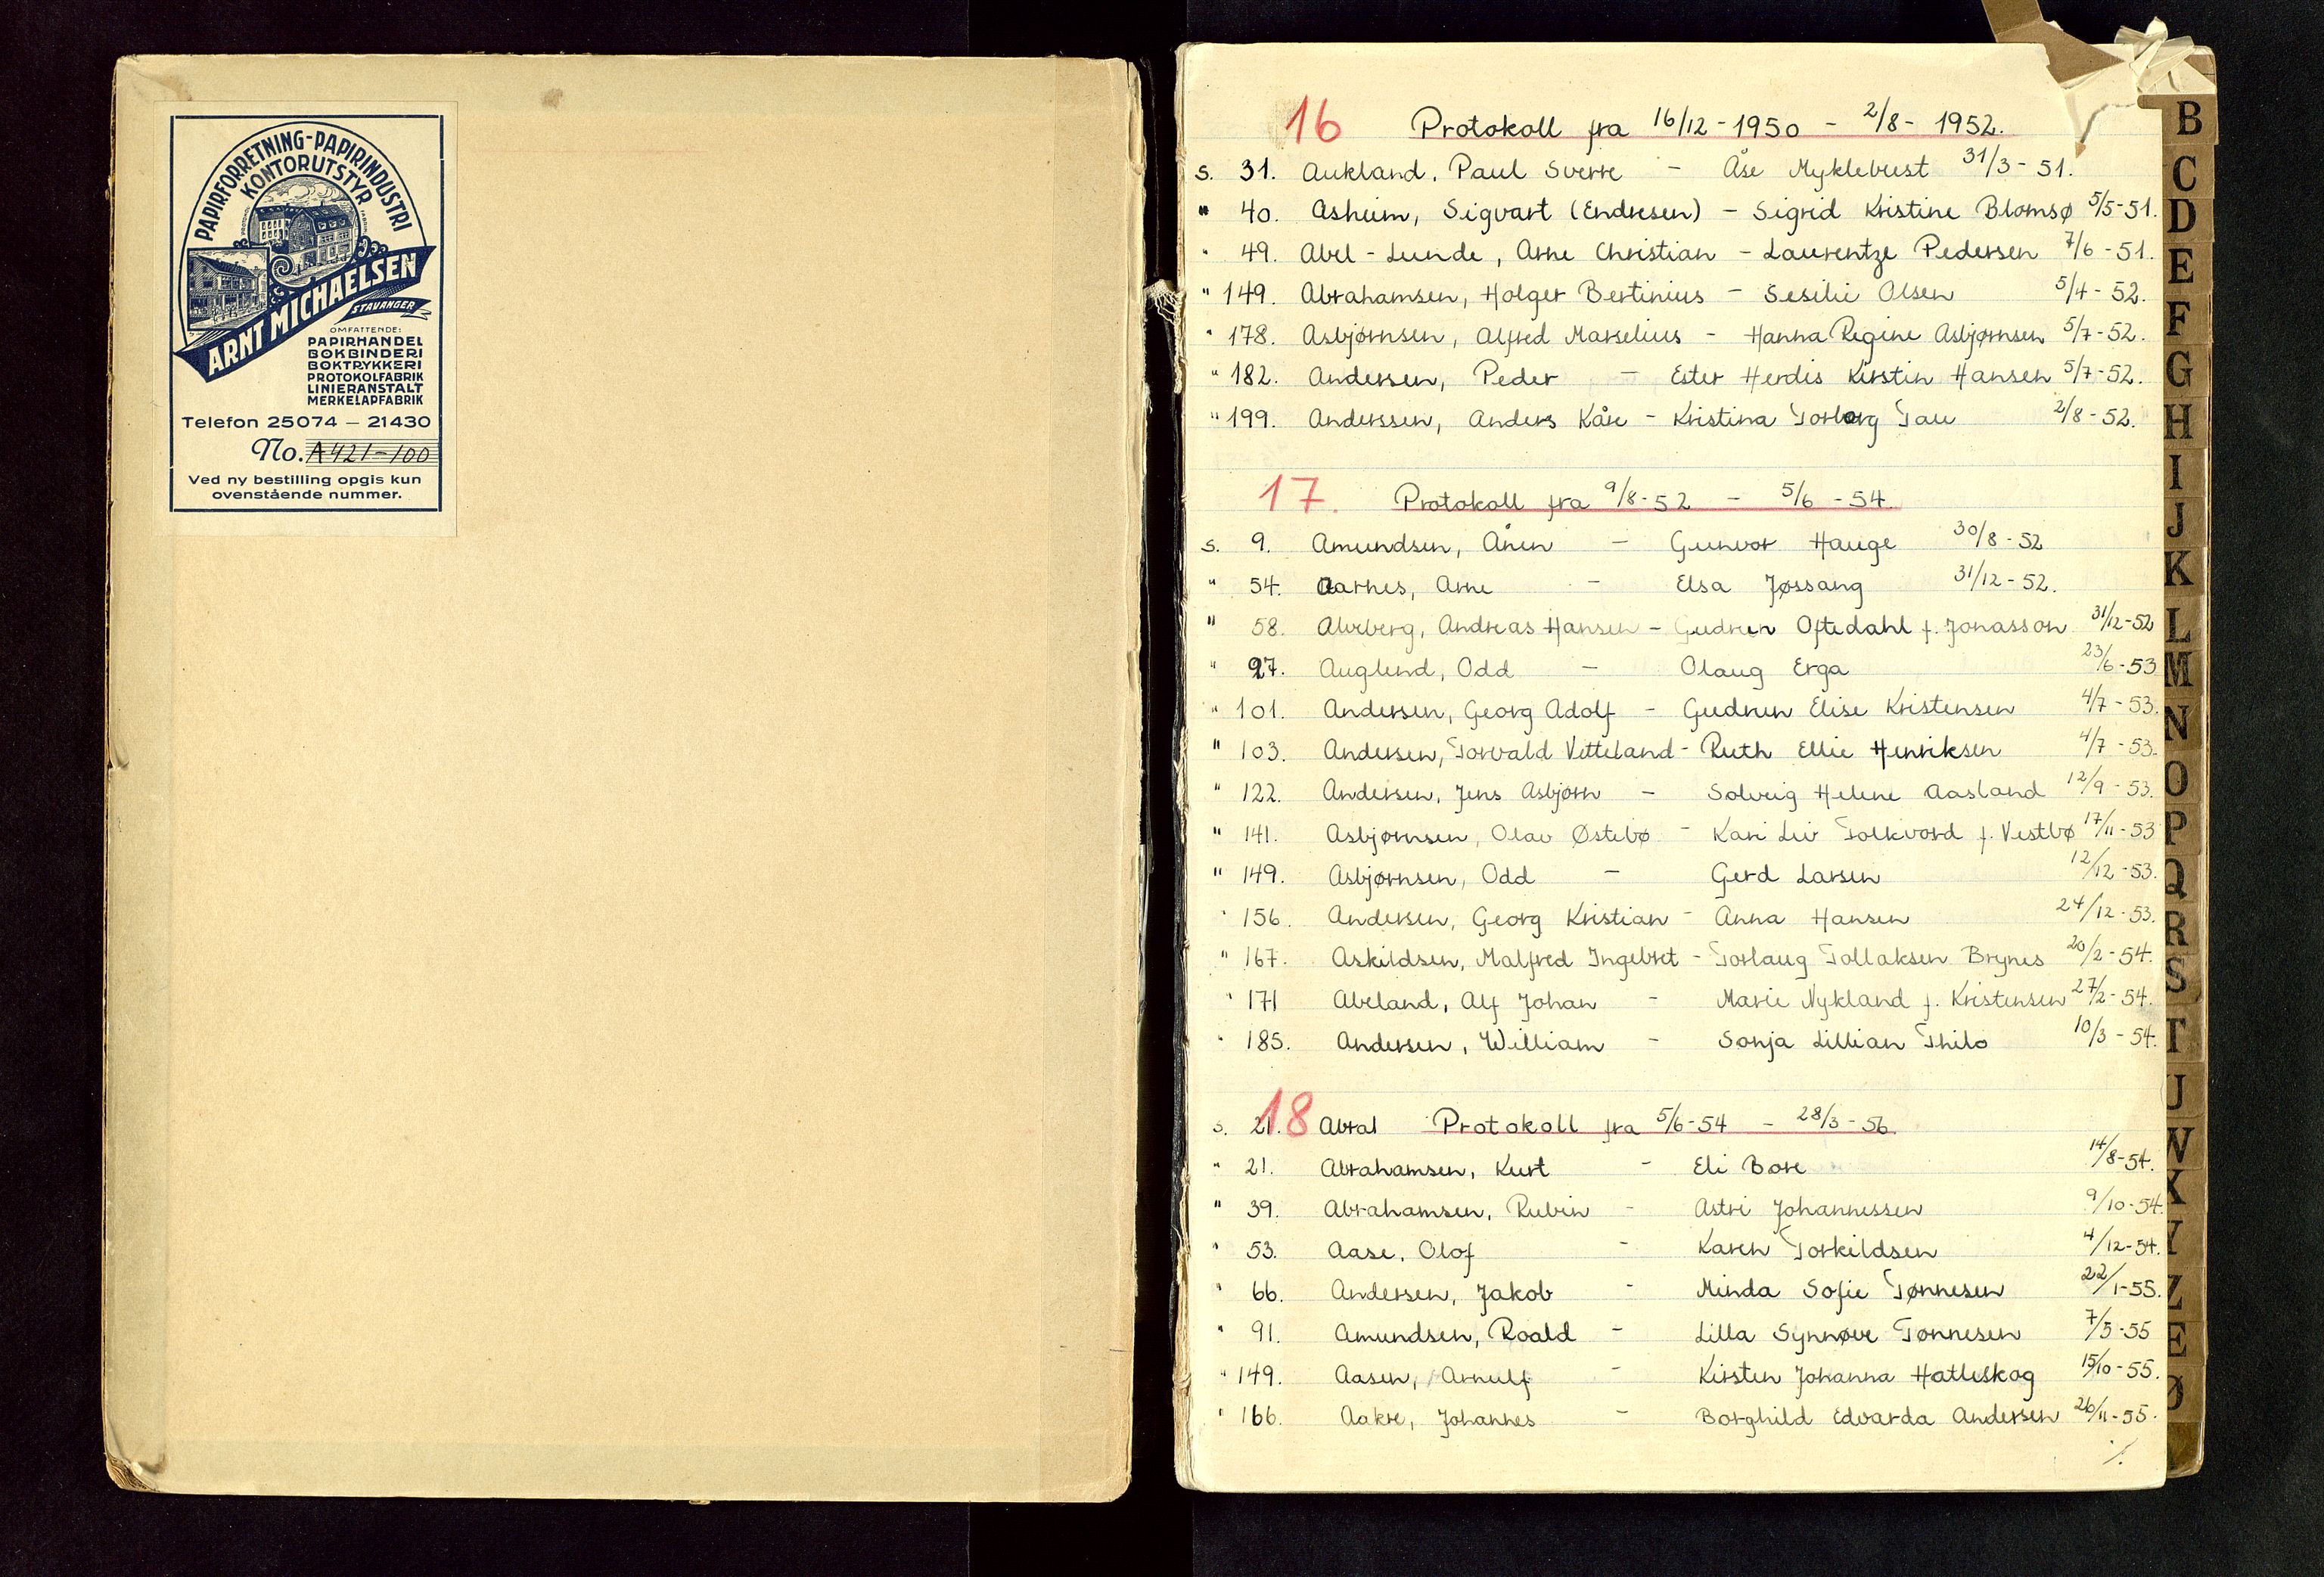 PAPIRFORRETNING-PAPIRINDUSTRI
KONTORUTSTYR
ARNT MICHAELSEN
STAVANGER
OMFATTENDE:
PAPIRHANDEL
BOKBINDERI
BOKTRYKKERI
PROTOKOLFABRIK
LINIERANSTALT
MERKELAPFABRIK
Telefon 25074 – 21430
No. A421-100
Ved ny bestilling opgis kun
ovenstående nummer.
16 Protokoll fra 16/12-1950 - 2/8- 1952.
s. 31. Aukland, Paul Sverre - Åse Myklebust 31/3-51.
" 40. Asheim, Sigvart (Endresen) - Sigrid Kristine Blomsø 5/5-51.
" 49. Abel-Lunde, Arne Christian - Laurentze Pedersen 7/6-51.
" 149. Abrahamsen, Holger Bertinius - Sesilie Olsen 5/4-52.
" 178. Asbjørnsen, Alfred Marselius - Hanna Regine Asbjørnsen 5/7-52.
" 182. Andersen, Peder - Ester Herdis Kirstin Hansen 5/7-52.
" 199. Anderssen, Anders Kåre - Kristina Torborg Tau 2/8-52.
17. Protokoll fra 9/8-52 - 5/6-54.
s. 9. Amundsen, Ånen - Gunvor Hauge 30/8-52
" 54. Aarnes, Arne - Elsa Jøssang 31/12-52.
" 58. Ahrberg, Andreas Hansen - Gudrun Oftedahl f. Jonasson 31/12-52
" 97. Auglend, Odd - Olaug Erga 23/6-53
" 101. Andersen, Georg Adolf - Gudrun Elise Kristensen 4/7-53.
" 103. Andersen, Torvald Vetteland - Ruth Ellie Henriksen 4/7-53.
" 122. Andersen, Jens Asbjørn - Solveig Helene Aasland 12/9-53.
" 141. Asbjørnsen, Olav Østebø - Kari Liv Folkvord f. Vestbø 17/11-53
" 149. Asbjørnsen, Odd - Gerd Larsen 12/12-53.
" 156. Andersen, Georg Kristian - Anna Hansen 24/12-53.
" 167. Askildsen, Malfred Ingebret - Torlaug Tollaksen Brynes 20/2-54.
" 171 Abeland, Alf Johan - Marie Nykland f. Kristensen 27/2-54.
" 185. Andersen, William - Sonja Lillian Thilo 10/3-54.
s. 21. 18 Abral Protokoll fra 5/6-54 - 28/3-56
" 21. Abrahamsen, Kurt - Eli Bore 14/8-54.
" 39. Abrahamsen, Rubin - Astri Johannessen 9/10-54.
" 53. Aase, Olof - Karen Torkildsen 4/12-54.
" 66. Andersen, Jakob - Minda Sofie Tønnesen 22/1-55.
" 91. Amundsen, Roald - Lilla Synnøve Tønnesen 7/5-55
" 149. Aasen, Arnulf - Kirsten Johanna Hatleskog 15/10-55.
" 166. Aakre, Johannes - Borghild Edvarda Andersen 26/11-55.
./.
B
C
D
E
F
G
H
I
J
K
L
M
N
O
P
Q
R
S
T
U
W
X
Y
Z
Æ
Ø